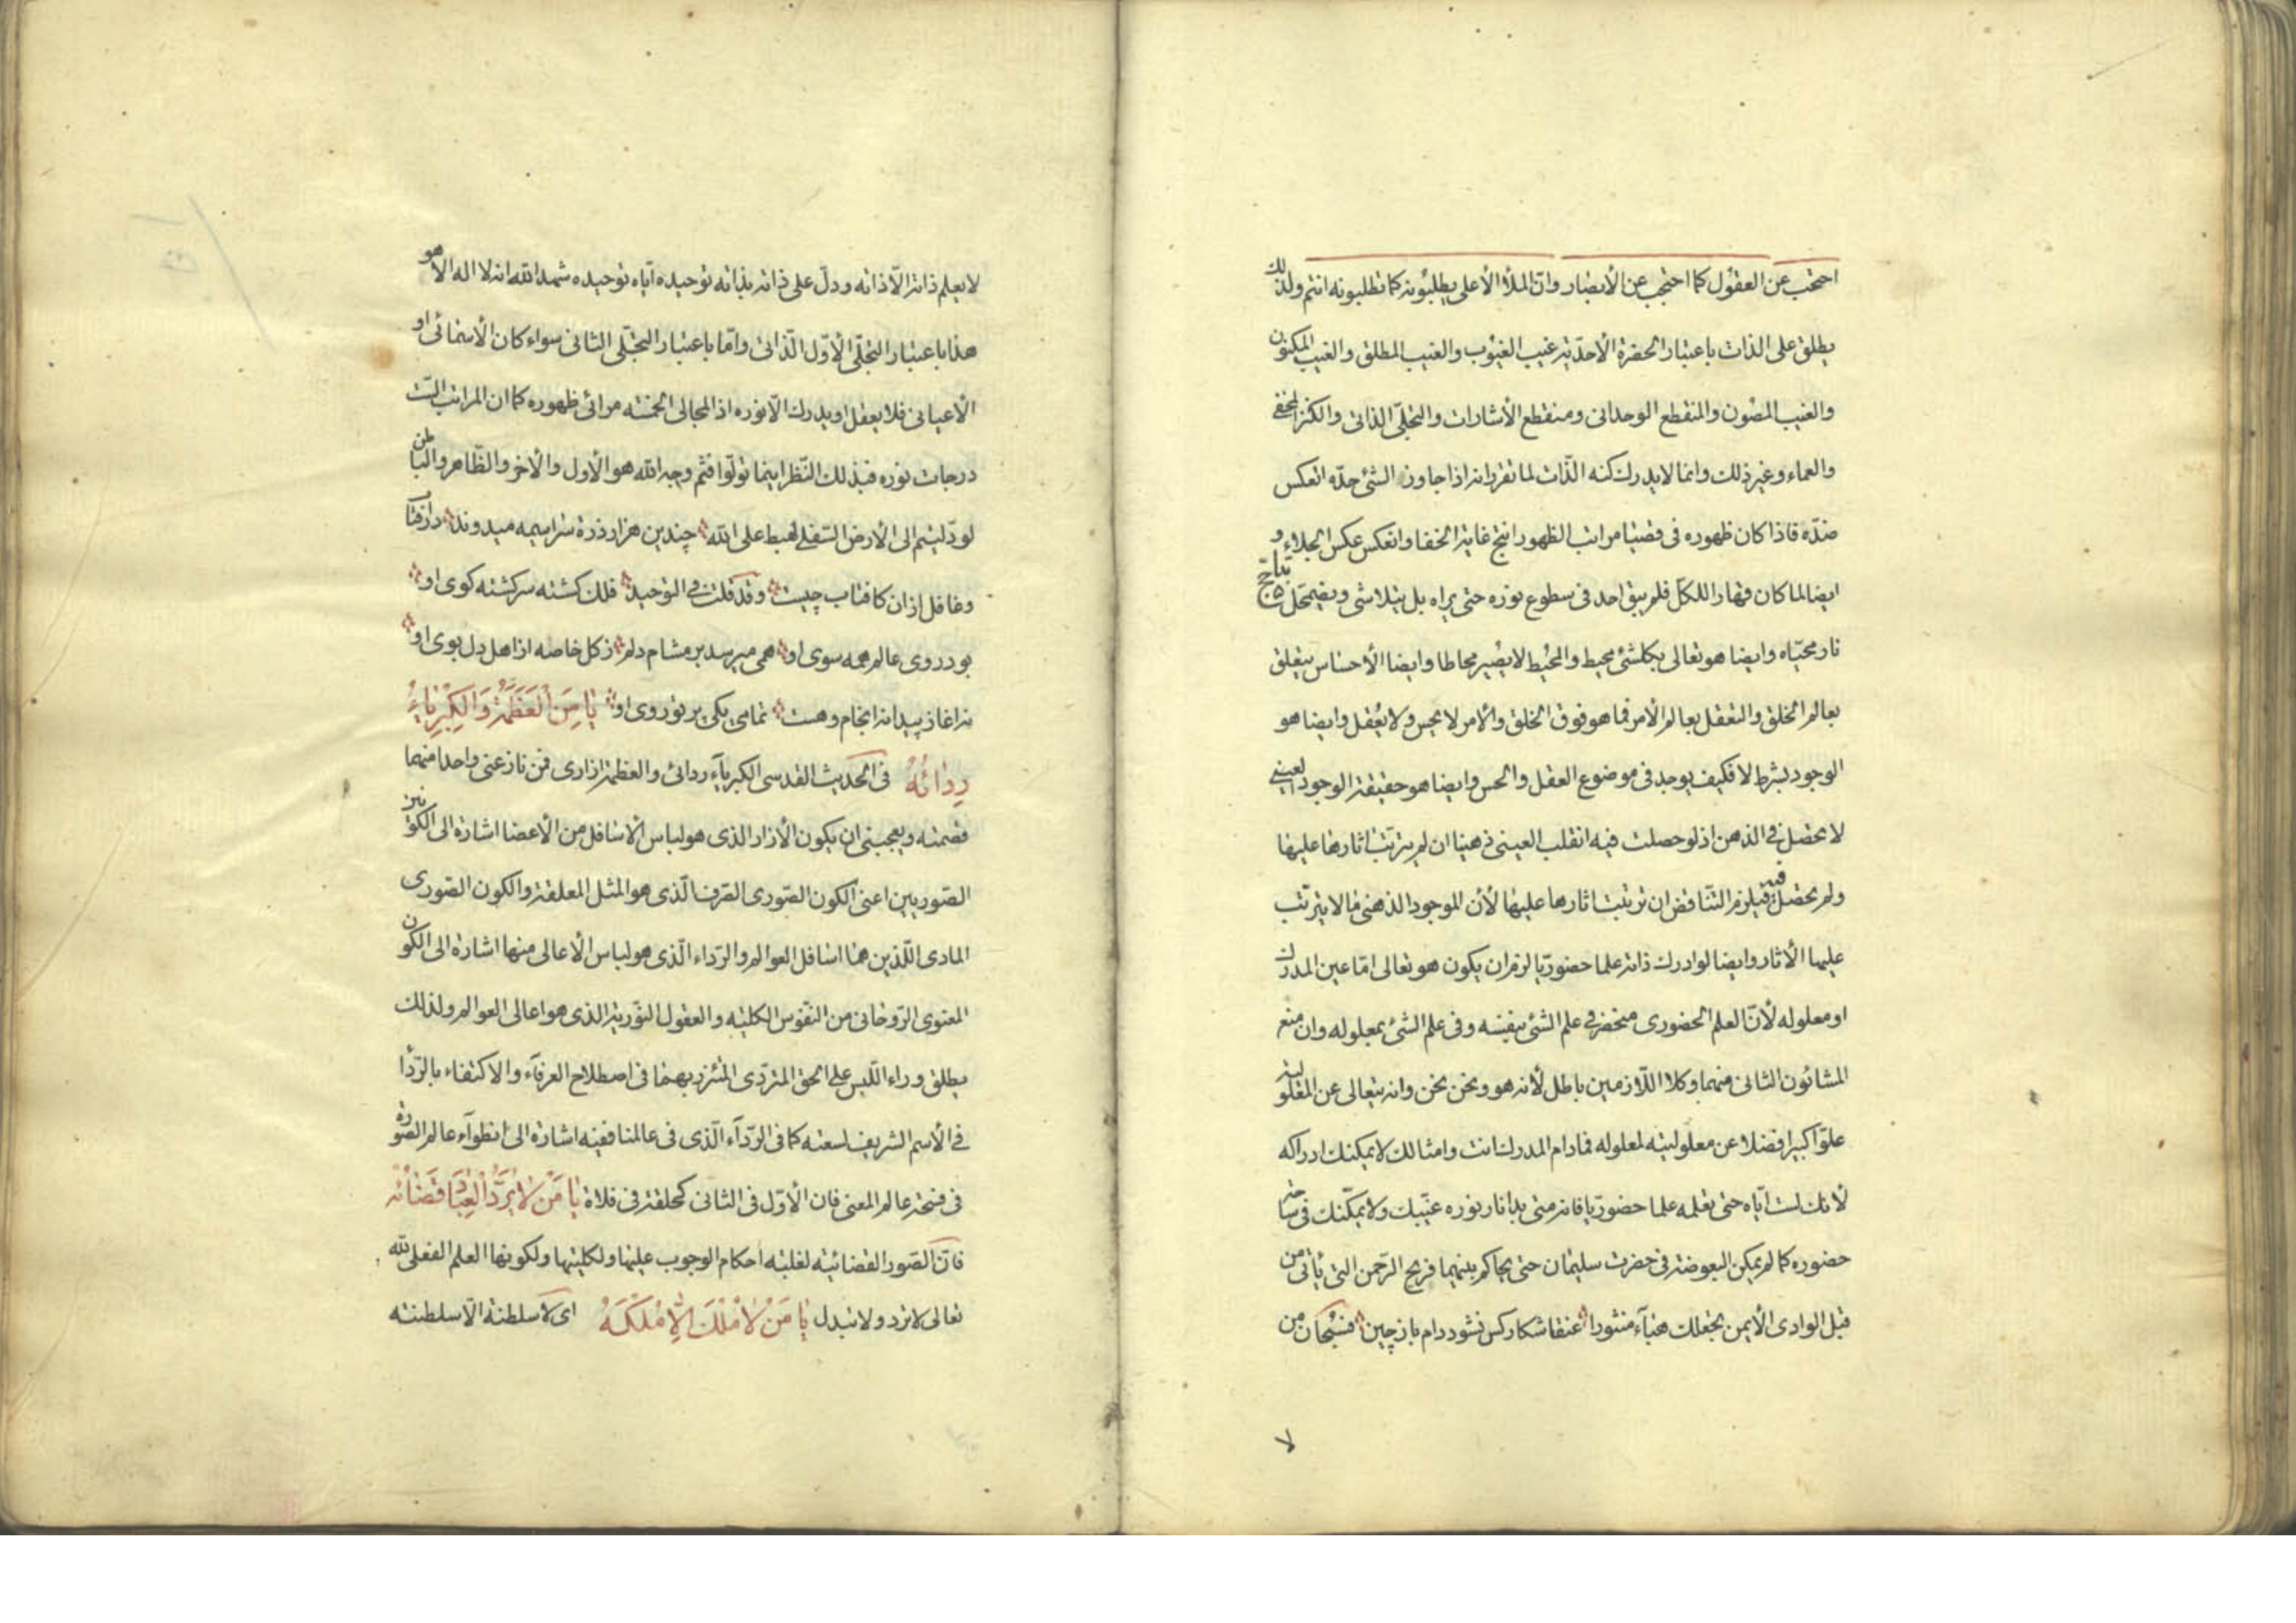 احتجب عن العقول كما احتجب عن الأبصار وان الملأ الأعلى يطلبونه كما تطلبونه انتم ولذلك
يطلق على الذات باعتبار الحضرة الأحدية غيب الغيوب والغيب المطلق والغيب المكنون
والغيب المصون والمنقطع الوحدانى ومنقطع الأشارات والتجلّى الذاتى والكنز المخفى
والعماء وغير ذلك وانما لا يدرك كنه الذّات لما تقرر انه اذا جاوز الشئ حدّه انعكس
ضدّه فاذا كان ظهوره فى قصيا مراتب الظهور انتج غاية الخفا وانعكس عكس الجلاء و
ايضا لما كان قهارا للكلّ فلم يبق احد فى سطوع نوره حتى يراه بل يتلاشى ويضمحل
نار محيّاه وايضا هو تعالى بكلشئ محيط والمحيط لا يصير محاطا وايضا الأحساس يتعلق
بعالم الخلق والتعقل بعالم الأمر فما هو فوق الخلق والامر لا يحس ولا يعقل وايضا هو
الوجود بشرط لا فكيف يوجد فى موضوع العقل والحس وايضا هو حقيقة الوجود العينى
لا يحصل فى الذهن اذ لو حصلت فيه انقلب العينى ذهنيا ان لم يترتب اثارها عليها
ولم يحصل فيه فيلزم التّناقض ان ترتب اثارها عليها لأن الموجود الذهنى ما لا يترتب
عليها الأثار وايضا لو ادرك ذاته علما حضوريّا لزم ان يكون هو تعالى امّا عين المدرك
او معلوله لأنّ العلم الحضورى منحصر فى علم الشئ بنفسه وفى علم الشئ بمعلوله وان منع
المشائون الثانى منهما وكلا اللّازمين باطل لأنه هو ونحن نحن وانه يتعالى عن المعلولية
علوّا كبيرا فضلا عن معلوليته لمعلوله فمادام المدرك انت وامثالك لا يمكنك ادراكه
لأنك لست ايّاه حتى تعلمه علما حضوريّا فانه متى بدا نار نوره غيّبك ولا يمكّنك فى ساحة
حضوره كما لم يمكن البعوضة فى حضرت سليمان حتى يحاكم بينهما فريح الرّحمن التى يأتى من
قبل الوادى الأيمن يجعلك هبآء منثورا عنقا شكار كس نشود دام باز چين فسبحان من
لا
لا يعلم ذاته الّا ذاته ودلّ على ذاته بذاته توحيده ايّاه توحيده شهد الله انه لا اله الا هو
هذا باعتبار التجلّى الأوّل الذّاتى وامّا باعتبار التجلّى الثانى سواء كان الأسمائى او
الأعيانى فلا يعقل او يدرك الّا نوره اذ المجالى الخمسه مرائى ظهوره كما ان المراتب الست
درجات نوره فبذلك النّظر اينما تولّوا فثم وجه الله هو الأول والأخر والظّاهر والباطن
لو دلّيتم الى الأرض السّفلى لهبط على الله چندين هزار ذرة سراسيمه ميدوند در آفتاب
وغافل ازان كافتاب چيست وقد قلت فى التوحيد فلك گشته سرگشته كوى او
بود روى عالم همه سوى او همى ميرسد بر مشام دلم ز كل خاصه از اهل دل بوى او
نه آغاز پيدا نه انجام وهست تمامى يكى پرتو روى او يا من العظمة والكبرياء
ردائه فى الحديث القدسى الكبريآء ردائى والعظمة ازارى فمن نازعنى واحدا منهما
قصمته ويعجبنى ان يكون الأزار الذى هو لباس الأسافل من الأعضا اشارة الى الكونين
الصّوريين اعنى الكون الصّورى الصّرف الّذى هو المثل المعلقة والكون الصّورى
المادى اللّذين هما اسافل العوالم والرّداء الّذى هو لباس الأعالى منها اشارة الى الكون
المعنوى الرّوحانى من النّفوس الكليّه والعقول النّورية الذى هو اعالى العوالم ولذلك
يطلق وراء اللّبس على الحق المتردّى المتّزر بهما فى اصطلاح العرفآء والاكتفاء بالرّدا
فى الأسم الشريف لسعته كما فى الرّدآء الّذى فى عالمنا ففيه اشارة الى انطوآء عالم الصّورة
فى فسحة عالم المعنى فان الأوّل فى الثانى كحلقة فى فلاة يا من لا يردّ العباد قضائه
فانّ الصّور القضائيّه لغلبه احكام الوجوب عليها ولكليتها ولكونها العلم الفعلى لله
تعالى لا تردّ ولا تبدل يا من لا ملك الّا ملكه اى لا سلطنة الّا سلطنته